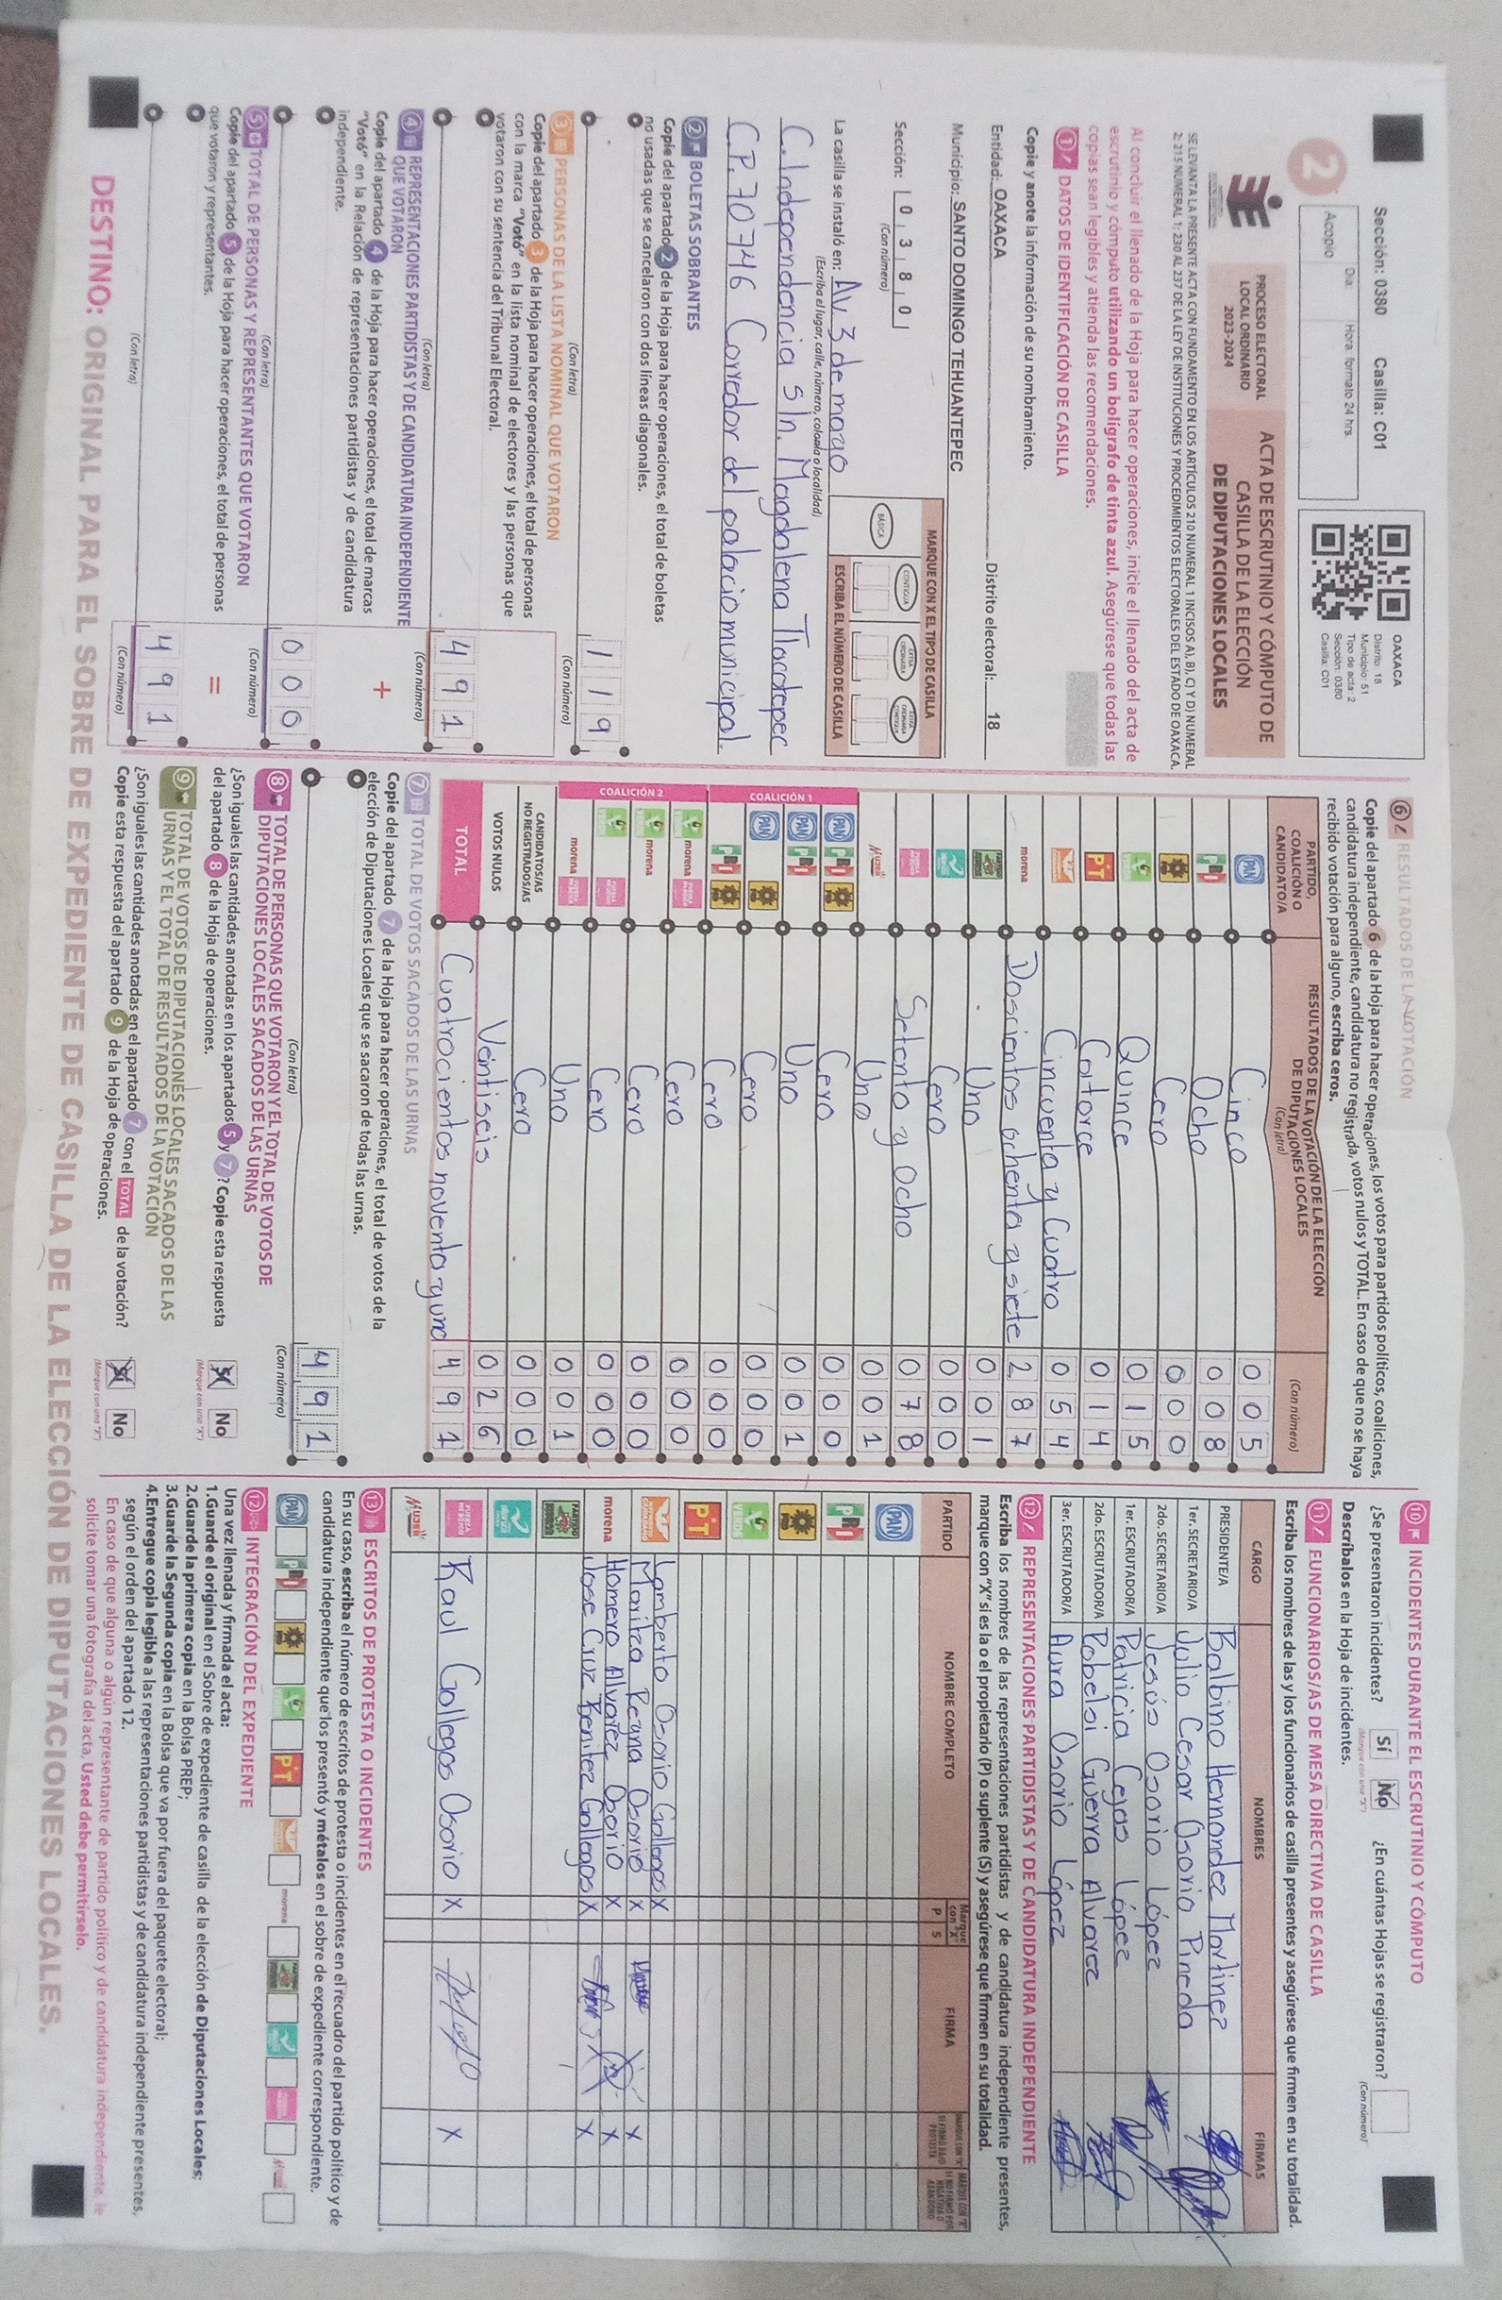 Sección: 0380 Casilla: C01
2
Día: Hora formato 24 hrs.
Acopio
OAXACA
Distrito: 18
Municipio: 51
Tipo de acta: 2
Sección: 0380
Casilla: C01
PROCESO ELECTORAL
LOCAL ORDINARIO
2023-2024
ACTA DE ESCRUTINIO Y CÓMPUTO DE
CASILLA DE LA ELECCIÓN
DE DIPUTACIONES LOCALES
SE LEVANTA LA PRESENTE ACTA CON FUNDAMENTO EN LOS ARTÍCULOS 210 NUMERAL 1 INCISOS A), B), C) Y D) NUMERAL
2; 215 NUMERAL 1; 230 AL 237 DE LA LEY DE INSTITUCIONES Y PROCEDIMIENTOS ELECTORALES DEL ESTADO DE OAXACA.
Al concluir el llenado de la Hoja para hacer operaciones, inicie el llenado del acta de
escrutinio y cómputo utilizando un bolígrafo de tinta azul. Asegúrese que todas las
copias sean legibles y atienda las recomendaciones.
1 DATOS DE IDENTIFICACIÓN DE CASILLA
Copie y anote la información de su nombramiento.
Entidad: OAXACA Distrito electoral: 18
Municipio: SANTO DOMINGO TEHUANTEPEC
Sección: 0 3 8 0
(Con número)
MARQUE CON X EL TIPO DE CASILLA
BÁSICA CONTIGUA EXTRAORDINARIA EXTRAORDINARIA CONTIGUA
ESCRIBA EL NÚMERO DE CASILLA
La casilla se instaló en: Av 3 de mayo
(Escriba el lugar, calle, número, colonia o localidad)
C. Independencia s/n. Magdalena Tlacotepec
C.P. 70746 Corredor del palacio municipal.
2 BOLETAS SOBRANTES
Copie del apartado 2 de la Hoja para hacer operaciones, el total de boletas
no usadas que se cancelaron con dos líneas diagonales.
1 1 9
(Con letra) (Con número)
3 PERSONAS DE LA LISTA NOMINAL QUE VOTARON
Copie del apartado 3 de la Hoja para hacer operaciones, el total de personas
con la marca "Votó" en la lista nominal de electores y las personas que
votaron con su sentencia del Tribunal Electoral.
4 9 1
(Con letra) (Con número)
4 REPRESENTACIONES PARTIDISTAS Y DE CANDIDATURA INDEPENDIENTE
QUE VOTARON
Copie del apartado 4 de la Hoja para hacer operaciones, el total de marcas
"Votó" en la Relación de representaciones partidistas y de candidatura
independiente.
+
0 0 0
(Con letra) (Con número)
5 TOTAL DE PERSONAS Y REPRESENTANTES QUE VOTARON
Copie del apartado 5 de la Hoja para hacer operaciones, el total de personas
que votaron y representantes.
=
4 9 1
(Con letra) (Con número)
6 RESULTADOS DE LA VOTACIÓN
Copie del apartado 6 de la Hoja para hacer operaciones, los votos para partidos políticos, coaliciones,
candidatura independiente, candidatura no registrada, votos nulos y TOTAL. En caso de que no se haya
recibido votación para alguno, escriba ceros.
PARTIDO,
COALICIÓN O
CANDIDATO/A
RESULTADOS DE LA VOTACIÓN DE LA ELECCIÓN
DE DIPUTACIONES LOCALES
(Con letra) (Con número)
PAN Cinco 0 0 5
PRI Ocho 0 0 8
PRD Cero 0 0 0
VERDE Quince 0 1 5
PT Catorce 0 1 4
Cincuenta y Cuatro 0 5 4
morena Doscientos ochenta y siete 2 8 7
Uno 0 0 1
Cero 0 0 0
Setenta y Ocho 0 7 8
MUJER Uno 0 0 1
COALICIÓN 1
PAN PRI PRD Cero 0 0 0
PAN PRI Uno 0 0 1
PAN PRD Cero 0 0 0
PRI PRD Cero 0 0 0
COALICIÓN 2
VERDE morena FUERZA Cero 0 0 0
VERDE morena Cero 0 0 0
VERDE FUERZA Cero 0 0 0
morena FUERZA Uno 0 0 1
CANDIDATOS/AS
NO REGISTRADOS/AS Cero 0 0 0
VOTOS NULOS Veintiseis 0 2 6
TOTAL Cuatrocientos noventa y uno 4 9 1
7 TOTAL DE VOTOS SACADOS DE LAS URNAS
Copie del apartado 7 de la Hoja para hacer operaciones, el total de votos de la
elección de Diputaciones Locales que se sacaron de todas las urnas.
4 9 1
(Con letra) (Con número)
8 TOTAL DE PERSONAS QUE VOTARON Y EL TOTAL DE VOTOS DE
DIPUTACIONES LOCALES SACADOS DE LAS URNAS
¿Son iguales las cantidades anotadas en los apartados 5 y 7? Copie esta respuesta
del apartado 8 de la Hoja de operaciones.
Sí No
(Marque con una "X")
9 TOTAL DE VOTOS DE DIPUTACIONES LOCALES SACADOS DE LAS
URNAS Y EL TOTAL DE RESULTADOS DE LA VOTACIÓN
¿Son iguales las cantidades anotadas en el apartado 7 con el TOTAL de la votación?
Copie esta respuesta del apartado 9 de la Hoja de operaciones.
Sí No
(Marque con una "X")
10 INCIDENTES DURANTE EL ESCRUTINIO Y CÓMPUTO
¿Se presentaron incidentes? Sí No ¿En cuántas Hojas se registraron?
(Marque con una "X") (Con número)
Descríbalos en la Hoja de incidentes.
11 FUNCIONARIOS/AS DE MESA DIRECTIVA DE CASILLA
Escriba los nombres de las y los funcionarios de casilla presentes y asegúrese que firmen en su totalidad.
CARGO NOMBRES FIRMAS
PRESIDENTE/A Balbino Hernandez Martinez
1er. SECRETARIO/A Julio Cesar Osorio Pineda
2do. SECRETARIO/A Jesús Osorio López
1er. ESCRUTADOR/A Patricia Cejas López
2do. ESCRUTADOR/A Robelsi Guerra Alvarez
3er. ESCRUTADOR/A Aura Osorio López
12 REPRESENTACIONES PARTIDISTAS Y DE CANDIDATURA INDEPENDIENTE
Escriba los nombres de las representaciones partidistas y de candidatura independiente presentes,
marque con "X" si es la o el propietario (P) o suplente (S) y asegúrese que firmen en su totalidad.
PARTIDO NOMBRE COMPLETO Marque con "X" P S FIRMA
PAN
PRI
PRD
VERDE
PT
Lamberto Osorio Gallegos X
Maritza Reyna Osorio X X
morena Homero Alvarez Osorio X X
Jose Cruz Benitez Gallegos X X
Raul Gallegos Osorio X X
MUJER
13 ESCRITOS DE PROTESTA O INCIDENTES
En su caso, escriba el número de escritos de protesta o incidentes en el recuadro del partido político y de
candidatura independiente que los presentó y métalos en el sobre de expediente correspondiente.
PAN PRI PRD VERDE PT morena
12 INTEGRACIÓN DEL EXPEDIENTE
Una vez llenada y firmada el acta:
1.Guarde el original en el Sobre de expediente de casilla de la elección de Diputaciones Locales;
2.Guarde la primera copia en la Bolsa PREP;
3.Guarde la Segunda copia en la Bolsa que va por fuera del paquete electoral;
4.Entregue copia legible a las representaciones partidistas y de candidatura independiente presentes,
según el orden del apartado 12.
En caso de que alguna o algún representante de partido político y de candidatura independiente, le
solicite tomar una fotografía del acta, Usted debe permitírselo.
DESTINO: ORIGINAL PARA EL SOBRE DE EXPEDIENTE DE CASILLA DE LA ELECCIÓN DE DIPUTACIONES LOCALES.